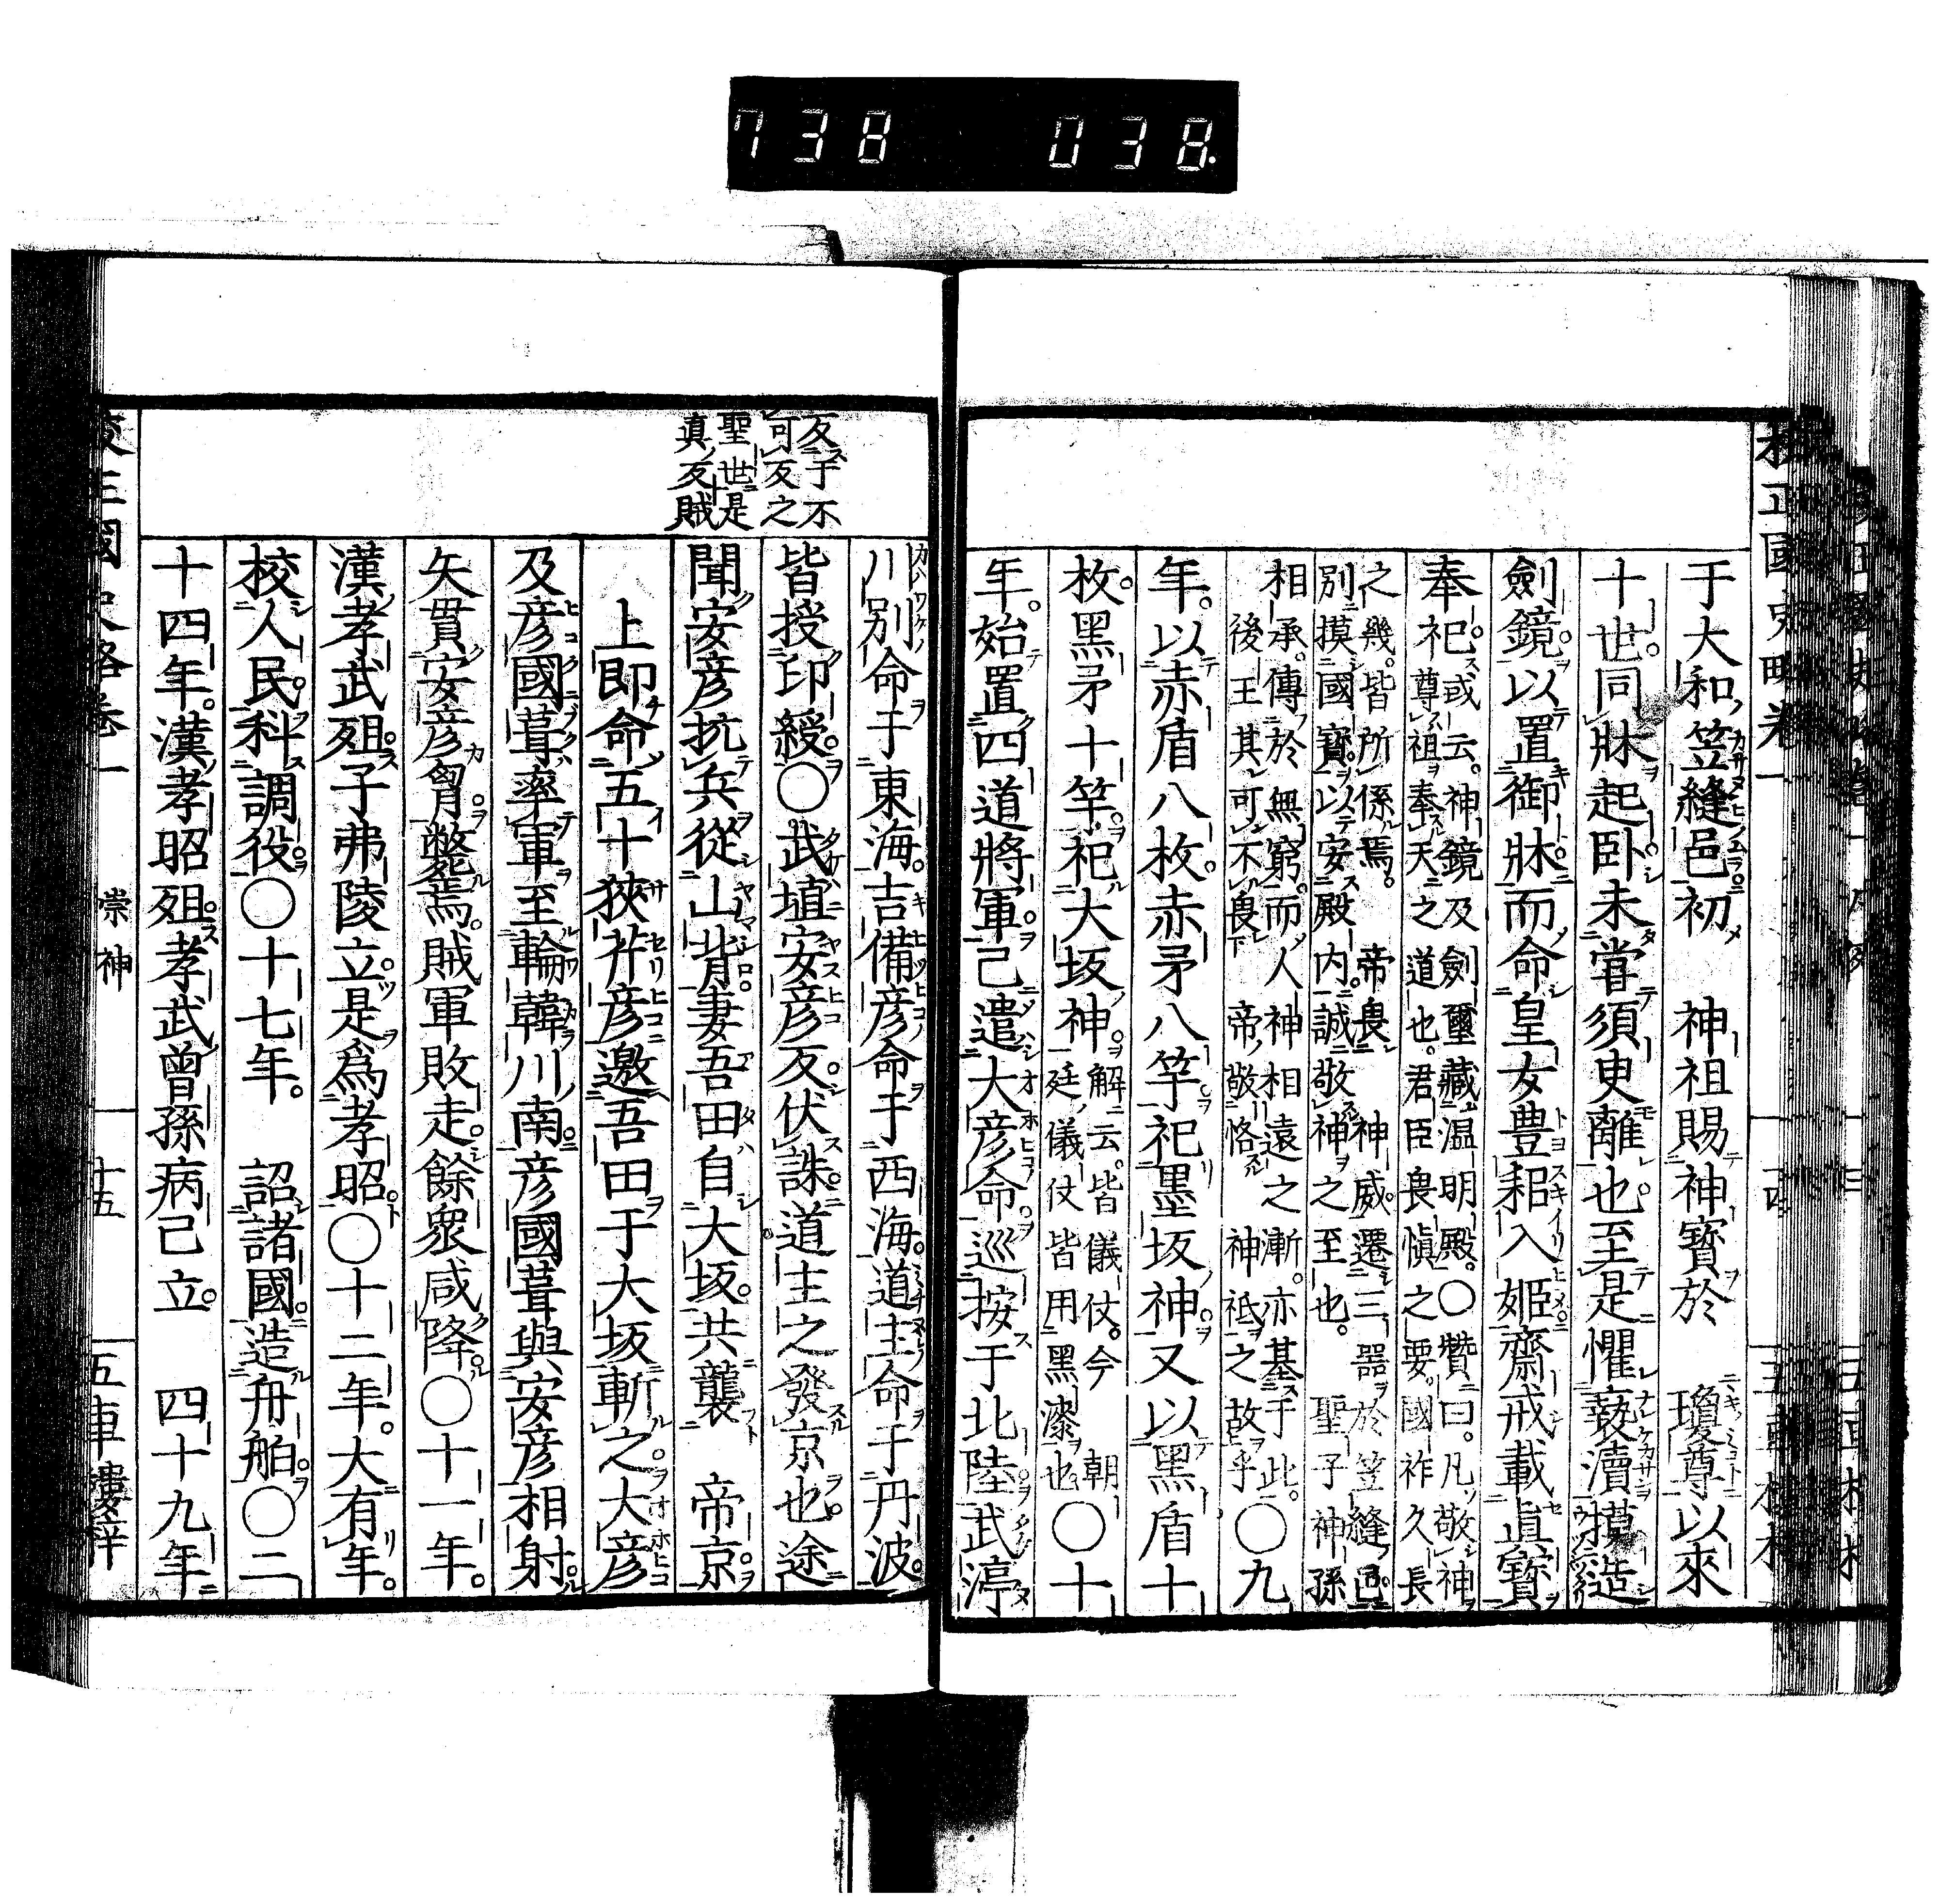 738 038.
校正國史略卷一
于大和笠縫邑初　神祖賜神寶於　瓊瓊尊以來
十世同牀起臥未嘗須臾離也至是懼褻瀆摸造
劍鏡以置御牀而命皇女豊耜入姬齋戒載眞寶
奉祀或云神鏡及劍璽藏溫明殿○贊曰凡敬神
尊祖奉天之道也君臣畏愼之要國祚久長
之幾皆所係焉　帝畏　神威遷三器於笠縫邑
別摸國寶以安殿内誠敬神之至也　聖子神孫
相承傳於無窮而人神相遠之漸亦基于此
後王其可不畏　帝敬恪　神祗之故乎○九
年以赤盾八枚赤矛八竿祀墨坂神又以黑盾十
枚黑矛十竿祀大坂神解云皆儀仗今　朝
廷儀仗皆用黑漆也○十
年始置四道將軍己遣大彦命巡按于北陸武渟
川別命于東海吉備彦命于西海道主命于丹波
皆授印綬○武埴安彦反伏誅道主之發京也途
聞安彦抗兵從山背妻吾田自大坂共襲　帝京
上即命五十狹芹彦邀吾田于大坂斬之大彦
及彦國葺率軍至輪韓川南彦國葺與安彦相射
矢貫安彦胷斃焉賊軍敗走餘衆咸降○十一年
漢孝武殂子弗陵立是爲孝昭○十二年大有年
校人民科調役○十七年　詔諸國造舟舶○二
十四年漢孝昭殂孝武曾孫病己立　四十九年
反于不
可反之
聖世是
眞反賊
校正國史略卷一　崇神　十五　五車樓梓